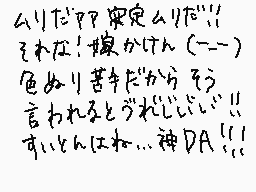 ムリだァァ 安定ムリだ!!
それな!嫁かけん(ーー)
色ぬり苦手だから そう
言われるとうれじいいい"!!
すいとんはね…神DA!!!